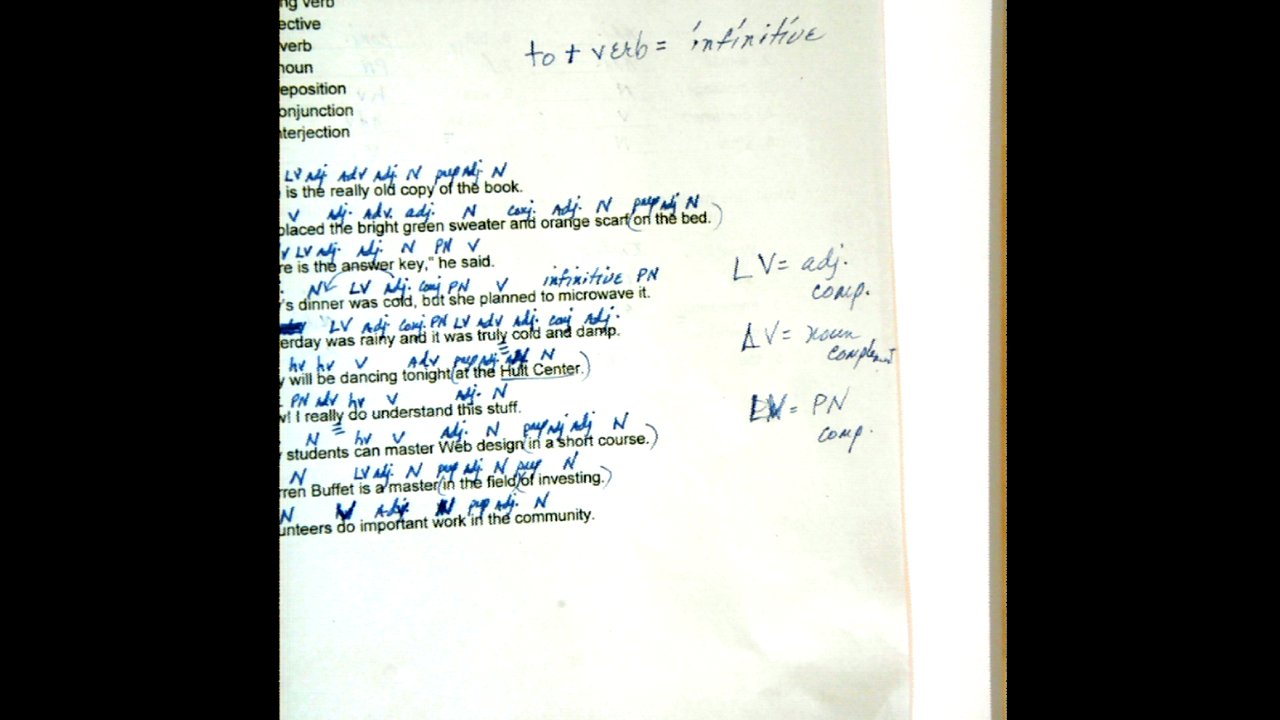 ng verb
ective
verb
noun
eposition
onjunction
nterjection
to + verb = infinitive
LV adj. adv adj. N prep adj. N
is the really old copy of the book.
V adj. adv. adj. N conj. adj. N prep adj N
placed the bright green sweater and orange scarf (on the bed.)
V LV adj. adj. N PN V
re is the answer key," he said.
N LV adj. conj PN V infinitive PN
's dinner was cold, but she planned to microwave it.
LV adj conj. PN LV adv adj. conj adj.
erday was rainy and it was truly cold and damp.
hv hv V adv prep adj. N
y will be dancing tonight (at the Hult Center.)
PN adv hv V adj. N
w! I really do understand this stuff.
N hv V adj. N prep adj adj N
y students can master Web design (in a short course.)
N LV adj. N prep adj N prep N
rren Buffet is a master (in the field) (of investing.)
N V adj. N prep adj. N
unteers do important work in the community.
LV = adj.
comp.
LV = noun
complement
LV = PN
comp.